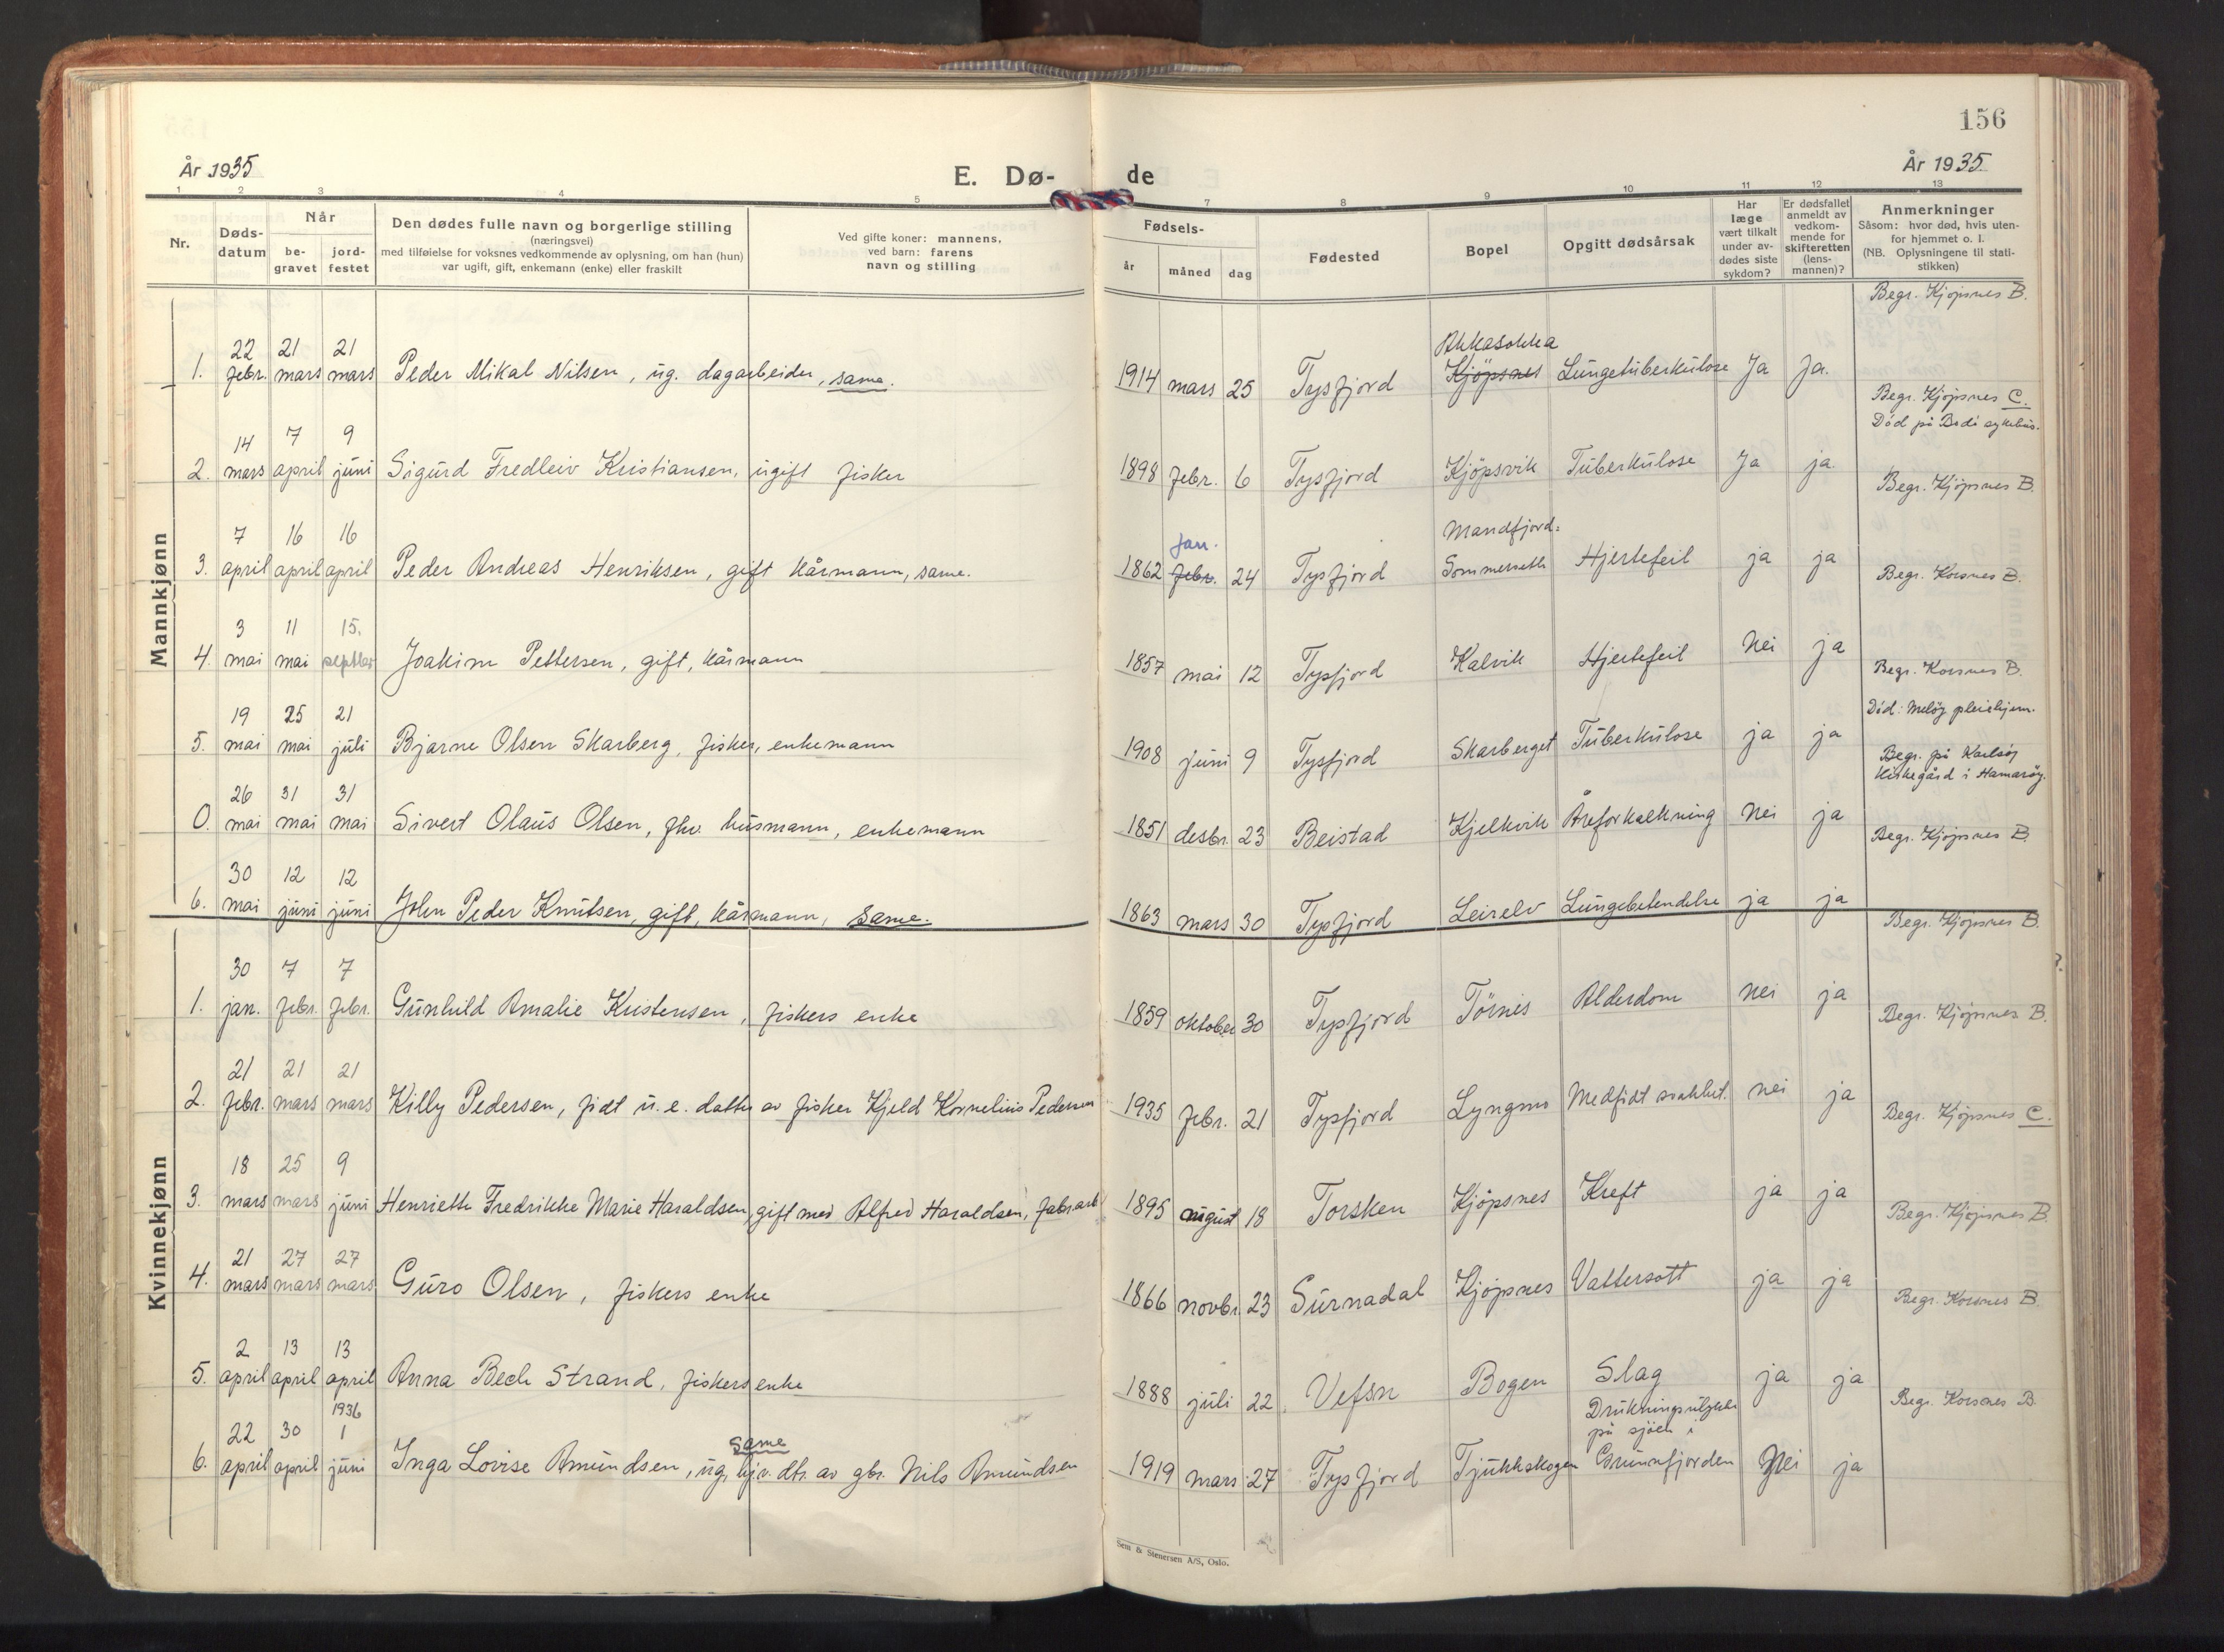 156
År 1935
E. Dø-
de
År 1935
1 2 3 4 5 7 8 9 10 11 12 13
Nr.
Døds-
datum
Når
be-
gravet
jord-
festet
Den dødes fulle navn og borgerlige stilling
(næringsvei)
med tilføielse for voksnes vedkommende av oplysning, om han (hun)
var ugift, gift, enkemann (enke) eller fraskilt
Ved gifte koner: mannens,
ved barn: farens
navn og stilling
Fødsels-
år måned dag
Fødested
Bopel
Opgitt dødsårsak
Har
læge
vært tilkalt
under av-
dødes siste
sykdom?
Er dødsfallet
anmeldt av
vedkom-
mende for
skifteretten
(lens-
mannen)?
Anmerkninger
Såsom: hvor død, hvis uten-
for hjemmet o. l.
(NB. Oplysningene til stati-
stikken)
Mannkjønn
Begr. Kjöpsnes B.
22 21 21 Akkasokka
1. febr. mars mars Peder Mikal Nilsen, ug. dagarbeider, same. 1914 mars 25 Tysfjord Kjöpsnes Lungetuberkulose Ja Ja.
Begr. Kjöpsnes C.
Död på Bodö sykehus.
14 7 9
2. mars april juni Sigurd Fredleiv Kristiansen, ugift fisker 1898 febr. 6 Tysfjord Kjöpsvik Tuberkulose Ja ja.
Begr. Kjöpsnes B.
7 16 16 jan. Mandfjord-
3. april april april Peder Andreas Henriksen, gift kårmann, same. 1862 febr. 24 Tysfjord Sommerseth Hjertefeil ja ja
Begr. Korsnes B.
3 11 15.
4. mai mai septbr Joakim Pettersen, gift, kårmann 1857 mai 12 Tysfjord Kalvik Hjertefeil Nei ja
Begr. Korsnes B.
Död: Melöy pleiehjem.
19 25 21
5. mai mai juli Bjarne Olsen Skarberg, fisker, enkemann 1908 juni 9 Tysfjord Skarberget Tuberkulose ja ja
Begr. på Karlsöy
Kirkegård i Hamaröy.
26 31 31
0. mai mai mai Sivert Olaus Olsen, fhv. husmann, enkemann 1851 desbr. 23 Beistad Kjelkvik Åreforkalkning Nei ja
Begr. Kjöpsnes B.
30 12 12
6. mai juni juni John Peder Knutsen, gift, kårmann, same. 1863 mars 30 Tysfjord Leirelv Lungebetendelse ja ja
Kvinnekjønn
Begr. Kjöpsnes B.
30 7 7
1. jan. febr. febr. Gunhild Amalie Kristensen, fiskers enke 1859 oktober 30 Tysfjord Törnes Alderdom nei ja
Begr. Kjöpsnes B.
21 21 21
2. febr. mars mars Killy Pedersen, födt u. e. datter av fisker Kjeld Kornelius Pedersen 1935 febr. 21 Tysfjord Lyngmo Medfödt svakhet. nei ja
Begr. Kjöpsnes C.
18 25 9
3. mars mars juni Henriette Fredrikke Marie Haraldsen, gift med Alfred Haraldsen, fabr.arb 1895 august 18 Torsken Kjöpsnes Kreft ja ja
Begr. Kjöpsnes B.
21 27 27
4. mars mars mars Guro Olsen, fiskers enke 1866 novbr. 23 Surnadal Kjöpsnes Vattersott ja ja
Begr. Korsnes B.
2 13 13
5. april april april Anna Bech Strand, fiskers enke 1888 juli 22 Vefsn Bogen Slag ja ja
Begr. Korsnes B.
22 30 1936 1 same Drukningsulykke
på sjöen i
6. april april juni Inga Lovise Amundsen, ug. hjv. dtr. av gbr. Nils Amundsen 1919 mars 27 Tysfjord Tjukkskogen Grunnfjorden Nei ja
Sem & Stenersen A/S, Oslo.